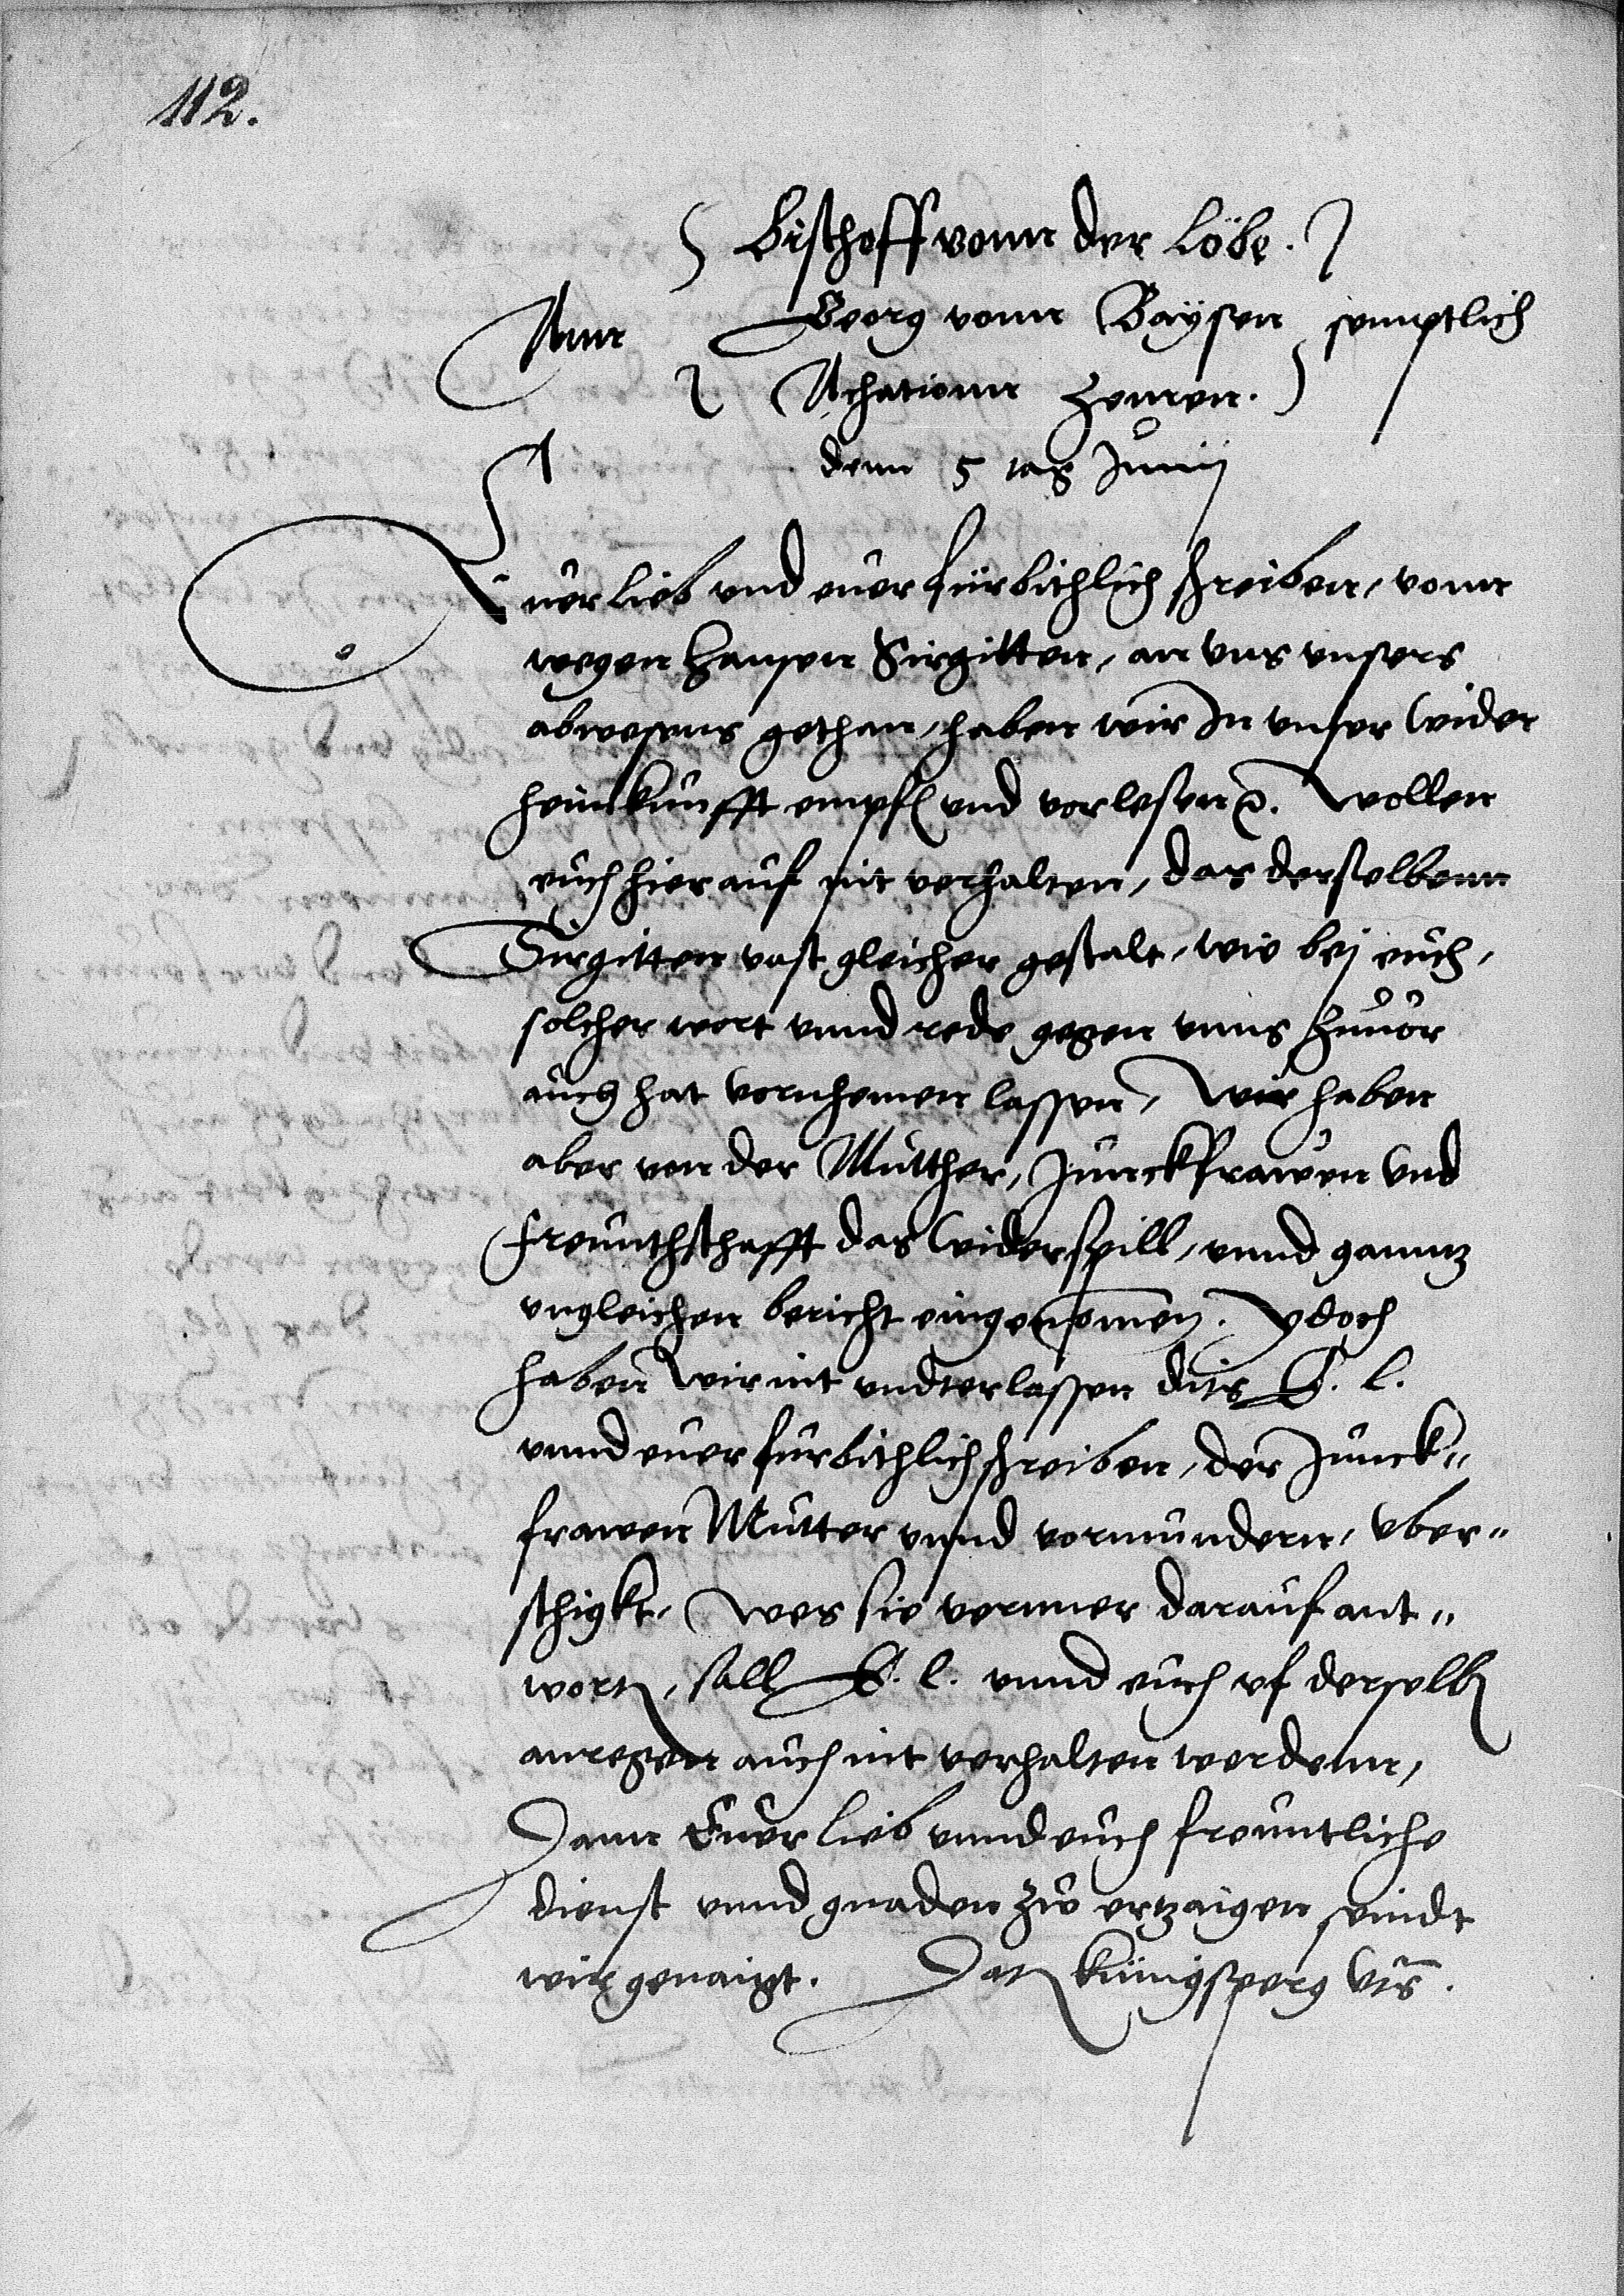 112.
Bischoff vonn der Löbe.
Ann Georg vonn Baÿsen semptlich
Achationn Zemen.
denn 5 tag Junij
Euer lieb vnd euer fürbithlich schreiben, vonn
wegen Hansen Sirgitten, an vns vnsers
abwesens gethan, haben wir In vnser wider
heimkunfft empf vnd vorlesen. Wollen
euch hierauf nit verhalten, das derselbenn
Sirgitten vast gleicher gestalt, wie bej euch,
solcher wort vnnd rede gegen vnns Zuuor
auch hat vornhemen lassen, Wir haben
aber von der Mutther, Junckfrawen vnd
freunthschafft das widerspill, vnnd ganntz
vngleichen bericht eingenomen. Ydoch
haben wir nit vndterlassen dits E. l.
vnnd euer furbithlich schreiben, der Junck„
frawen Mutter vnnd vormundern, vber„
schigkt, Wes sie vernner darauf ant„
wortn, sall E. l. vnnd euch vf derselbn
anregen auch nit verhalten werdenn,
Dann Euer lieb vnnd euch freuntliche
dienst vnnd gnaden zw ertzaigen seindt
wir genaigt. Datn Künigsperg vts.